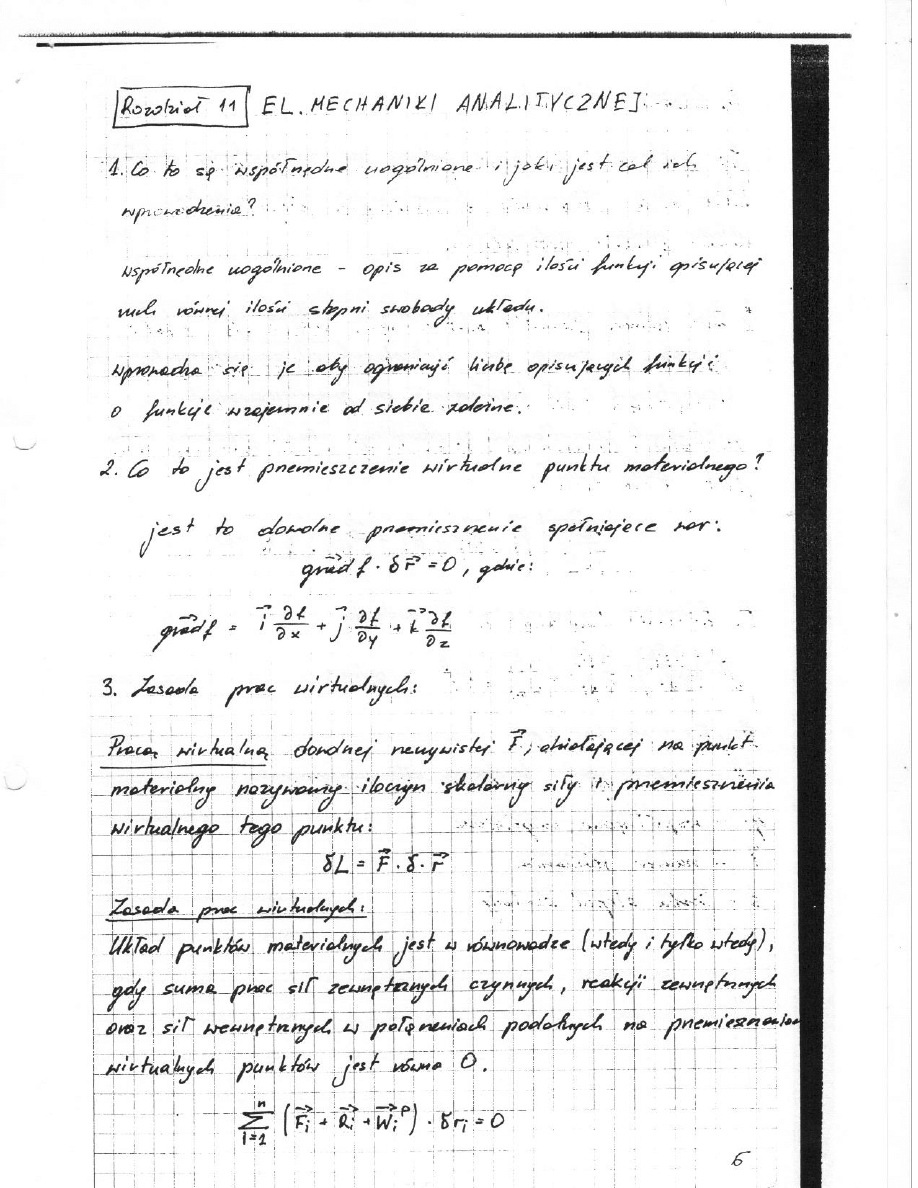 Rozdział 11 EL. MECHANIKI ANALITYCZNEJ
1. Co to są współrzędne uogólnione i jaki jest cel ich
wprowadzenia?
współrzędne uogólnione - opis za pomocą ilości funkcji opisującej
ruch równej ilości stopni swobody układu.
wprowadza się je aby ograniczyć liczbę opisujących funkcji
o funkcje wzajemnie od siebie zależne.
2. Co to jest przemieszczenie wirtualne punktu materialnego?
jest to dowolne przemieszczenie spełniające war:
grad f · δr = 0, gdzie:
grad f = i ∂f/∂x + j ∂f/∂y + k ∂f/∂z
3. Zasada prac wirtualnych:
Pracą wirtualną dowolnej rzeczywistej F, działającej na punkt
materialny nazywamy iloczyn skalarny siły i przemieszczenia
wirtualnego tego punktu:
δL = F · δ · r
Zasada prac wirtualnych:
Układ punktów materialnych jest w równowadze (wtedy i tylko wtedy),
gdy suma prac sił zewnętrznych czynnych, reakcji zewnętrznych
oraz sił wewnętrznych w połączeniach podatnych na przemieszczeniach
wirtualnych punktów jest równa 0.
∑ i=1 n (Fi + Ri + Wi^P) · δri = 0
6